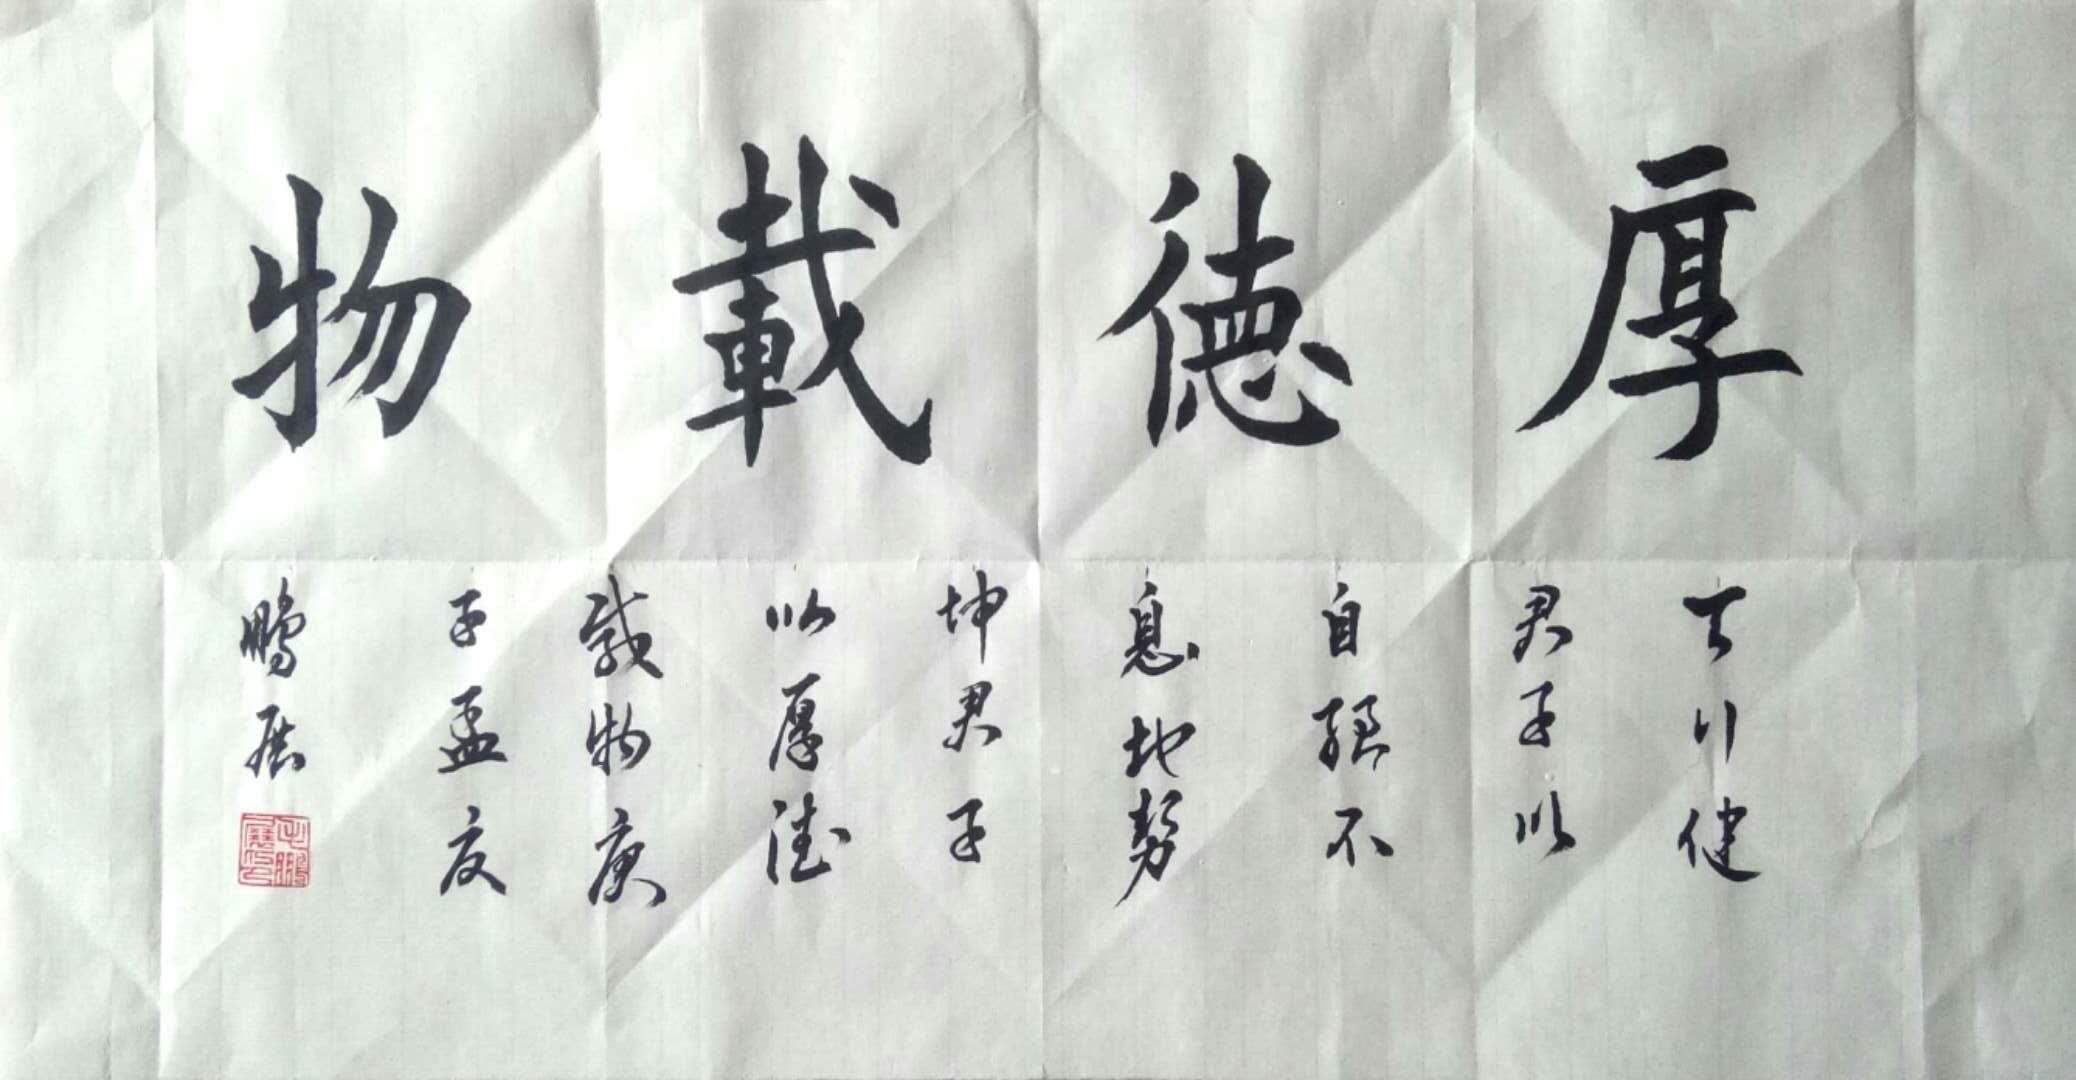 厚德載物
天行健
君子以
自強不
息地勢
坤君子
以厚德
載物庚
子孟夏
鵬展